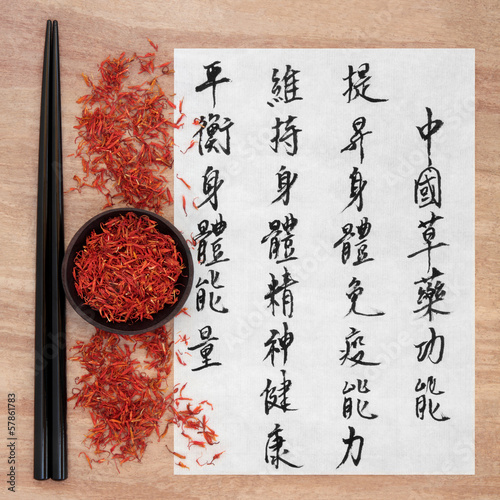 中國草藥功能
提昇身體免疫能力
維持身體精神健康
平衡身體能量
Adobe Stock | #57861783